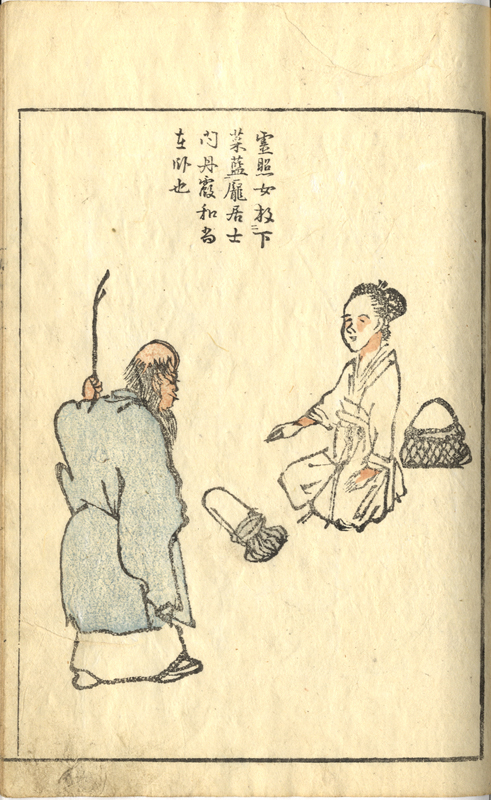 霊照女放下
菜藍龐居士
问丹霞和尚
在卧也